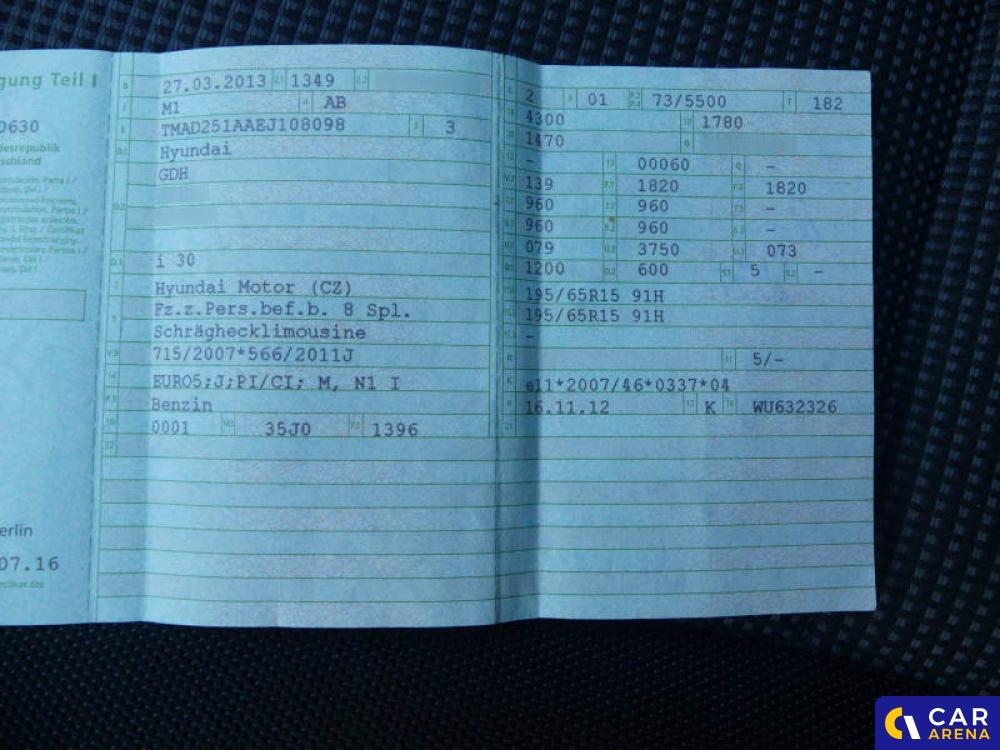 gung Teil I
0630
desrepublik
schland
erlin
07.16
27.03.2013 2.1 1349 2.2
M1 AB
TMAD251AAEJ108098 3
Hyundai
GDH
i 30
Hyundai Motor (CZ)
Fz.z.Pers.bef.b. 8 Spl.
Schräghecklimousine
715/2007*566/2011J
EURO5;J;PI/CI; M, N1 I
Benzin
0001 35J0 1396
2 01 73/5500 182
4300 1780
1470
- 00060 -
139 1820 1820
960 960 -
960 960 -
079 3750 073
1200 600 5 -
195/65R15 91H
195/65R15 91H
-
5/-
e11*2007/46*0337*04
16.11.12 K WU632326
CAR
ARENA